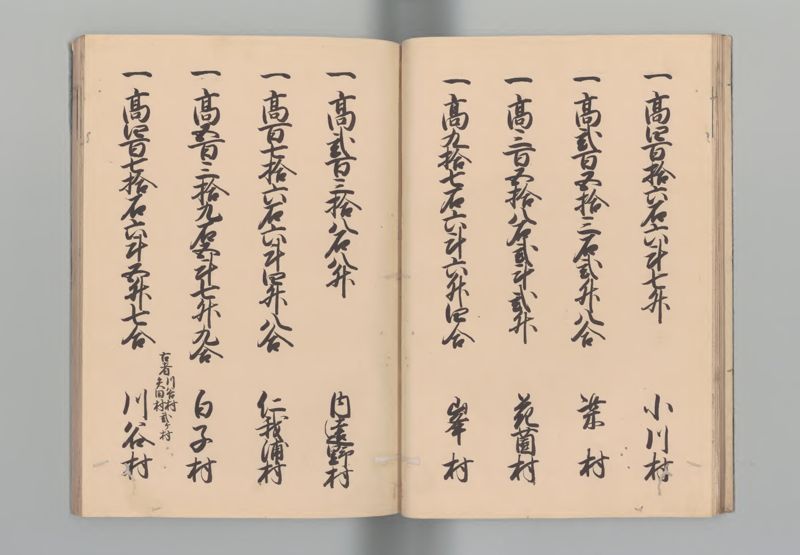 一高四百拾六石六斗七升 小川村
一高弐百五拾二石弐升八合 柴村
一高三百五拾八石弐斗弐升 花園村
一高九拾七石六斗六升四合 峯村
一高弐百三拾八石八升 内遠野村
一高百七拾六石六斗四升八合 仁我浦村
一高五百三拾九石五斗七升九合 白子村
一高四百七拾石六斗五升七合 川谷村
古者川谷村
矢田村弐ヶ村